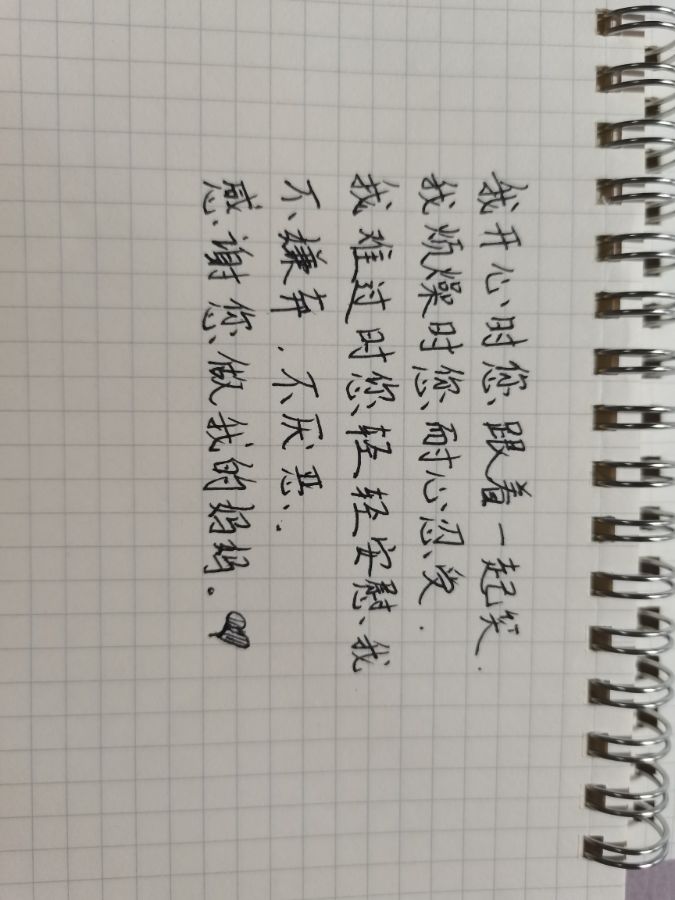 我开心时您跟着一起笑.
我烦燥时您耐心忍受.
我难过时您轻轻安慰我
不嫌弃,不厌恶..
感谢您做我的妈妈.